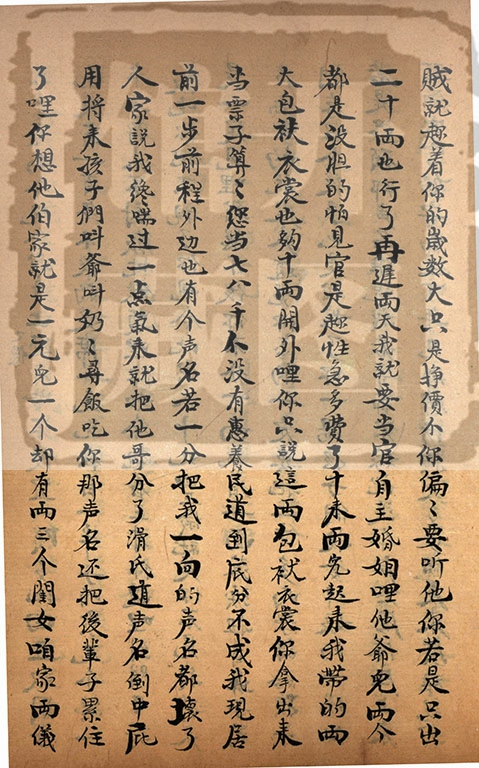 贼就趂着你的歲数大只是挣價不你偏〻要听他你若是只出
二十两也行了再遲両天我就要当官自主婚姻哩他爺児両个
都是没胆的怕見官是趂性急多費了十来両先起来我帶的両
大包袱衣裳也夠十両開外哩你只說這両包袱衣裳你拿出来
当票子算〻您当七八千不没有惠養民道到底分不成我現居
前一步前程外边也有个声名若一分把我一向的声名都壊了
人家說我終喘过一点氣来就把他哥分了滑氏道声名倒中屁
用将来孩子們叫爺叫奶〻尋飯吃你那声名还把後輩子累住
了哩你想他伯家就是一元児一个却有両三个閨女咱家両儀